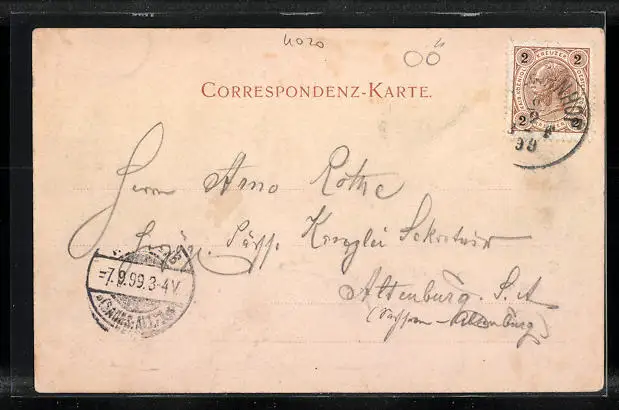 4020
OÖ
CORRESPONDENZ-KARTE.
2 KREUZER 2
2 2
99
Herrn Arno Rothe
Kanzlei Sekretär
-7.9.99.3-4V
Altenburg. S. A
(Sachsen-Altenburg)